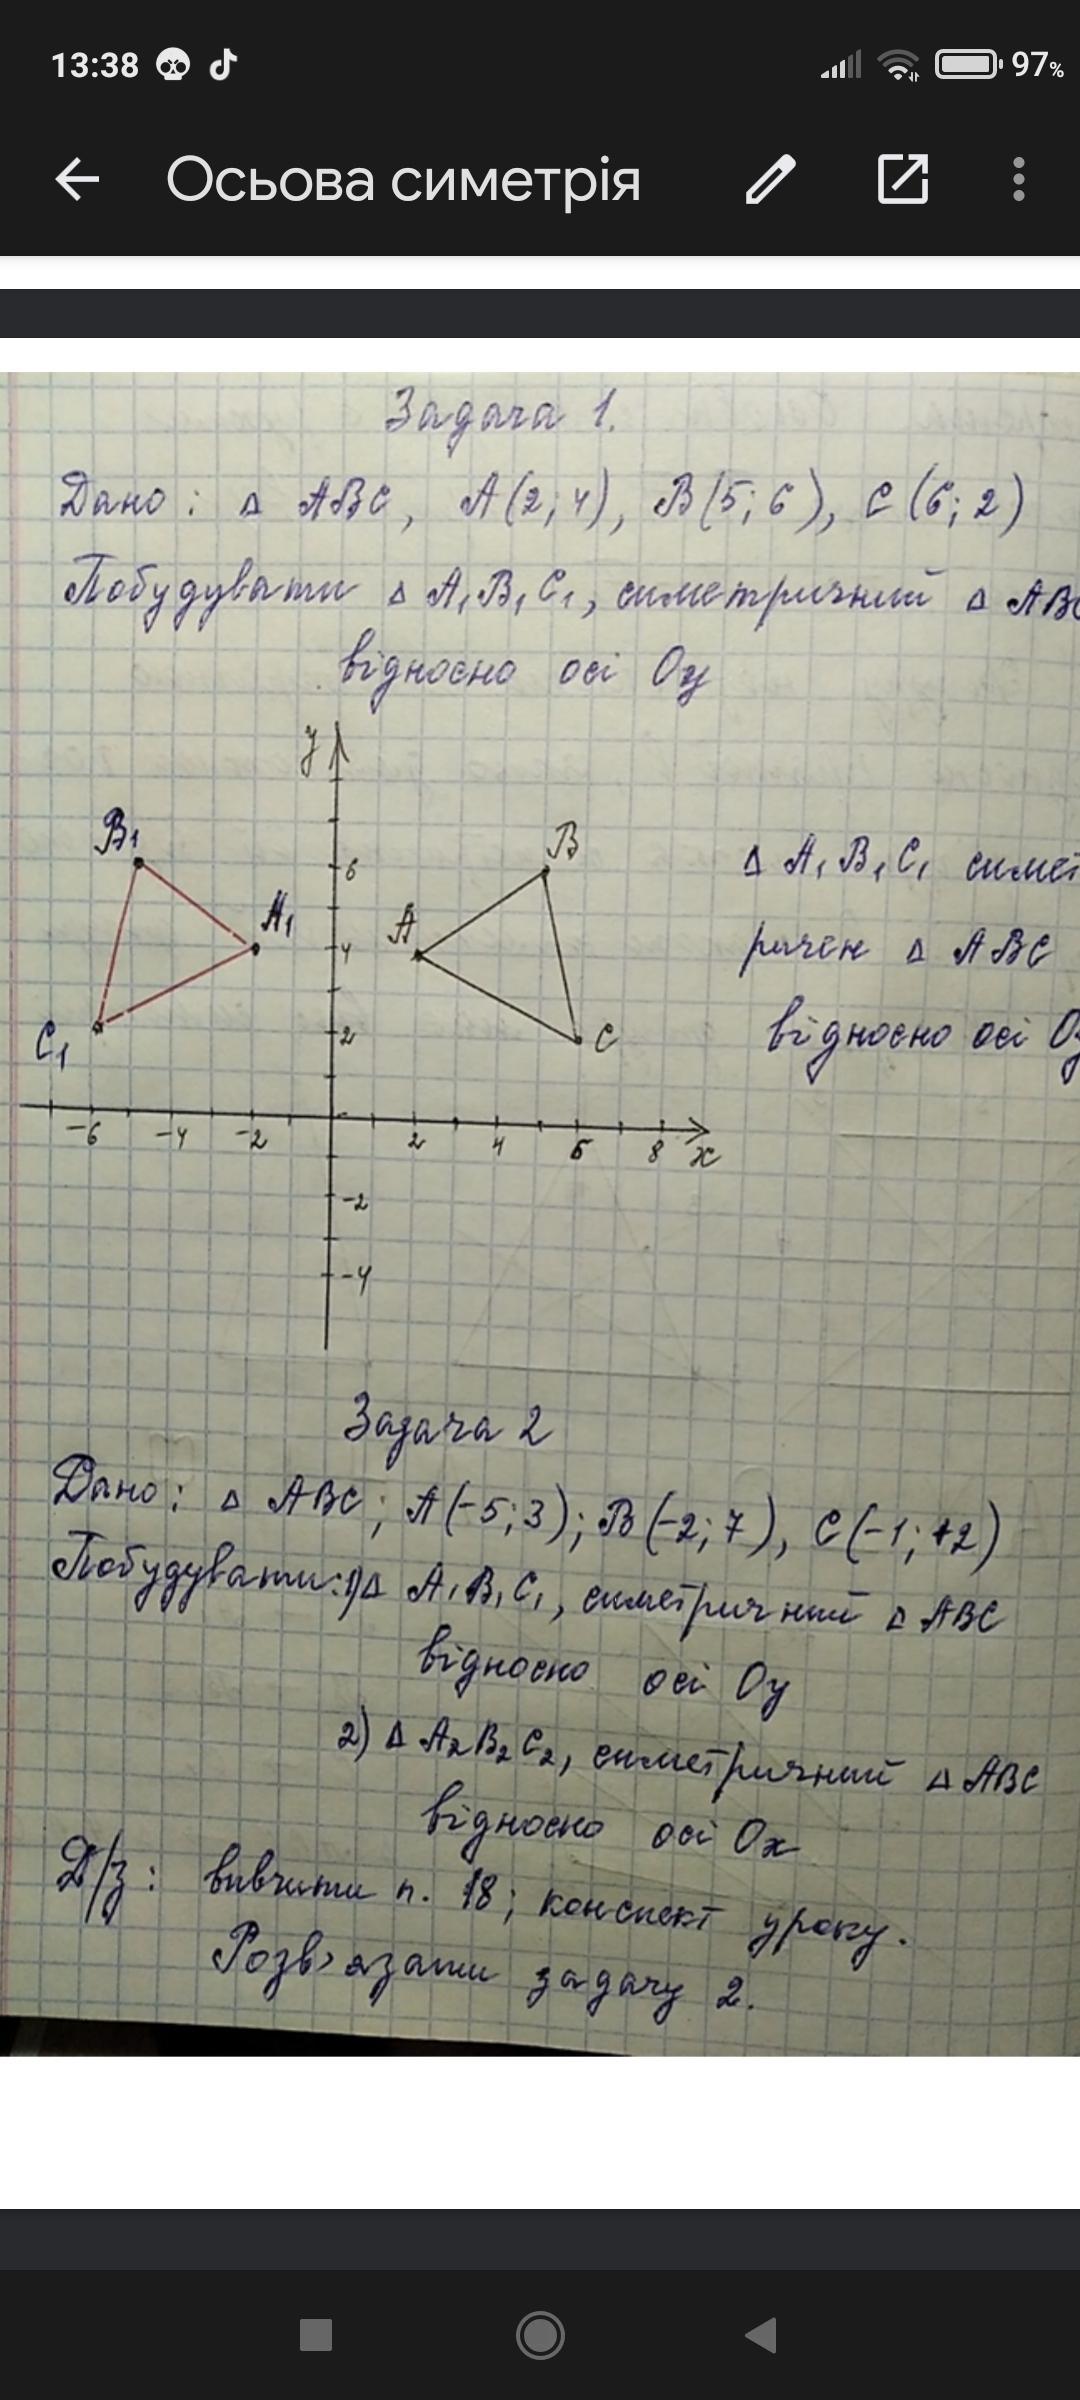 13:38 97%
Осьова симетрія
Задача 1.
Дано: Δ ABC, A(2; 4), B(5; 6), C(6; 2)
Побудувати Δ A₁B₁C₁, симетричний Δ ABC
відносно осі Oy
y
B₁ B
6
A₁ A 4
C₁ 2 C
-6 -4 -2 2 4 6 8 x
-2
-4
Δ A₁B₁C₁ симет
ричен Δ ABC
відносно осі Oy
Задача 2
Дано: Δ ABC; A(-5; 3); B(-2; 7), C(-1; +2)
Побудувати: 1) Δ A₁B₁C₁, симетричний Δ ABC
відносно осі Oy
2) Δ A₂B₂C₂, симетричний Δ ABC
відносно осі Ox
Д/з: вивчити п. 18; конспект уроку.
Розв'язати задачу 2.